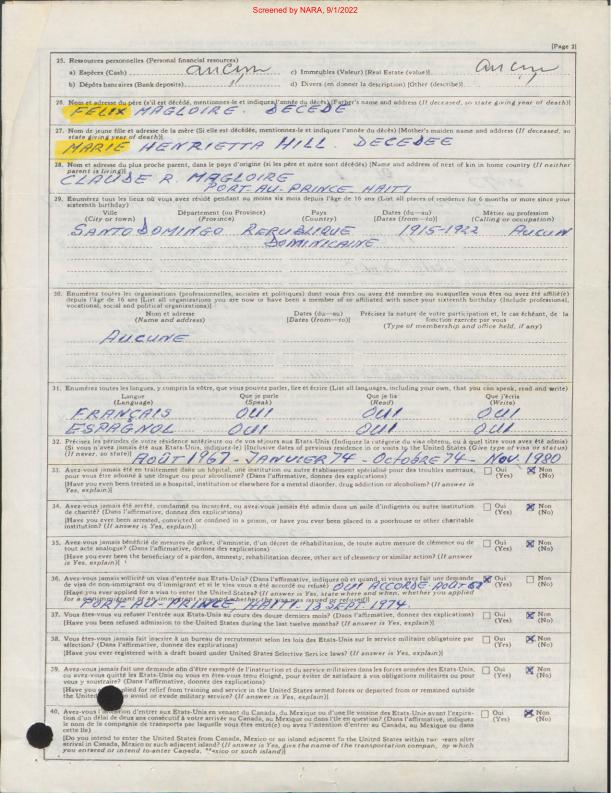 Screened by NARA, 9/1/2022
[Page 2]
25. Ressources personnelles (Personal financial resources)
a) Espèces (Cash) aucun c) Immeubles (Valeur) [Real Estate (value)] aucun
b) Dépôts bancaires (Bank deposits) d) Divers (en donner la description) [Other (describe)]
26. Nom et adresse du père (s'il est décédé, mentionnez-le et indiquez l'année du décès) [Father's name and address (If deceased, so state giving year of death)]
FELIX MAGLOIRE. DECEDE
27. Nom de jeune fille et adresse de la mère (Si elle est décédée, mentionnez-le et indiquez l'année du décès) [Mother's maiden name and address (If deceased, so
state giving year of death)]
MARIE HENRIETTA HILL. DECEDEE
28. Nom et adresse du plus proche parent, dans le pays d'origine (si les père et mère sont décédés) [Name and address of next of kin in home country (If neither
parent is living)]
CLAUDE R. MAGLOIRE
PORT-AU-PRINCE HAITI
29. Enumérez tous les lieux où vous avez résidé pendant au moins six mois depuis l'âge de 16 ans [List all places of residence for 6 months or more since your
sixteenth birthday)
Ville Département (ou Province) Pays Dates (du—au) Métier ou profession
(City or town) (Province) (Country) [Dates (from—to)] (Calling or occupation)
SANTO DOMINGO REPUBLIQUE 1915-1922 AUCUN
DOMINICAINE
30. Enumérez toutes les organisations (professionnelles, sociales et politiques) dont vous êtes ou avez été membre ou auxquelles vous êtes ou avez été affilié(e)
depuis l'âge de 16 ans [List all organizations you are now or have been a member of or affiliated with since your sixteenth birthday (Include professional,
vocational, social and political organizations)]
Nom et adresse Dates (du—au) Précisez la nature de votre participation et, le cas échéant, de la
(Name and address) [Dates (from—to)] fonction exercée par vous
(Type of membership and office held, if any)
AUCUNE
31. Enumérez toutes les langues, y compris la vôtre, que vous pouvez parler, lire et écrire (List all languages, including your own, that you can speak, read and write)
Langue Que je parle Que je lis Que j'écris
(Language) (Speak) (Read) (Write)
FRANÇAIS OUI OUI OUI
ESPAGNOL OUI OUI OUI
32. Précisez les périodes de votre résidence antérieure ou de vos séjours aux Etats-Unis (Indiquez la catégorie du visa obtenu, ou à quel titre vous avez été admis)
(Si vous n'avez jamais été aux Etats-Unis, indiquez-le) [Inclusive dates of previous residence in or visits to the United States (Give type of visa or status)
(If never, so state)]
AOÛT 1967 - JANVIER 74 - OCTOBRE 74 - NOV. 1980
33. Avez-vous jamais été en traitement dans un hôpital, une institution ou autre établissement spécialisé pour des troubles mentaux, Oui Non
pour vous être adonné à une drogue ou pour alcoolisme? (Dans l'affirmative, donnez des explications) (Yes) (No)
[Have you ever been treated in a hospital, institution or elsewhere for a mental disorder, drug addiction or alcoholism? (If answer is
Yes, explain)]
34. Avez-vous jamais été arrêté, condamné ou incarcéré, ou avez-vous jamais été admis dans un asile d'indigents ou autre institution Oui Non
de charité? (Dans l'affirmative, donnez des explications) (Yes) (No)
[Have you ever been arrested, convicted or confined in a prison, or have you ever been placed in a poorhouse or other charitable
institution? (If answer is Yes, explain)]
35. Avez-vous jamais bénéficié de mesures de grâce, d'amnistie, d'un décret de réhabilitation, de toute autre mesure de clémence ou de Oui Non
tout acte analogue? (Dans l'affirmative, donnez des explications) (Yes) (No)
[Have you ever been the beneficiary of a pardon, amnesty, rehabilitation decree, other act of clemency or similar action? (If answer is
Yes, explain)]
36. Avez-vous jamais sollicité un visa d'entrée aux Etats-Unis? (Dans l'affirmative, indiquez où et quand, si vous avez fait une demande Oui Non
de visa de non-immigrant ou d'immigrant et si le visa vous a été accordé ou refusé) OUI ACCORDE AOUT (Yes) (No)
[Have you ever applied for a visa to enter the United States? (If answer is Yes, state where and when, whether you applied
for a nonimmigrant or an immigrant visa, and whether the visa was issued or refused)]
PORT-AU-PRINCE HAITI - 13 SEPT 1974.
37. Vous êtes-vous vu refuser l'entrée aux Etats-Unis au cours des douze derniers mois? (Dans l'affirmative, donnez des explications) Oui Non
[Have you been refused admission to the United States during the last twelve months? (If answer is Yes, explain)] (Yes) (No)
38. Vous êtes-vous jamais fait inscrire à un bureau de recrutement selon les lois des Etats-Unis sur le service militaire obligatoire par Oui Non
sélection? (Dans l'affirmative, donnez des explications) (Yes) (No)
[Have you ever registered with a draft board under United States Selective Service laws? (If answer is Yes, explain)]
39. Avez-vous jamais fait une demande afin d'être exempté de l'instruction et du service militaires dans les forces armées des Etats-Unis, Oui Non
ou avez-vous quitté les Etats-Unis ou vous en êtes-vous tenu éloigné, pour éviter de satisfaire à vos obligations militaires ou pour (Yes) (No)
vous y soustraire? (Dans l'affirmative, donnez des explications)
[Have you applied for relief from training and service in the United States armed forces or departed from or remained outside
the United to avoid or evade military service? (If answer is Yes, explain)]
40. Avez-vous l'intention d'entrer aux Etats-Unis en venant du Canada, du Mexique ou d'une île voisine des Etats-Unis avant l'expira- Oui Non
tion d'un délai de deux ans consécutif à votre arrivée au Canada, au Mexique ou dans l'île en question? (Dans l'affirmative, indiquez (Yes) (No)
le nom de la compagnie de transports par laquelle vous êtes entré(e) ou avez l'intention d'entrer au Canada, au Mexique ou dans
cette île)
[Do you intend to enter the United States from Canada, Mexico or an island adjacent to the United States within two years after
arrival in Canada, Mexico or such adjacent island? (If answer is Yes, give the name of the transportation company by which
you entered or intend to enter Canada, Mexico or such island)]